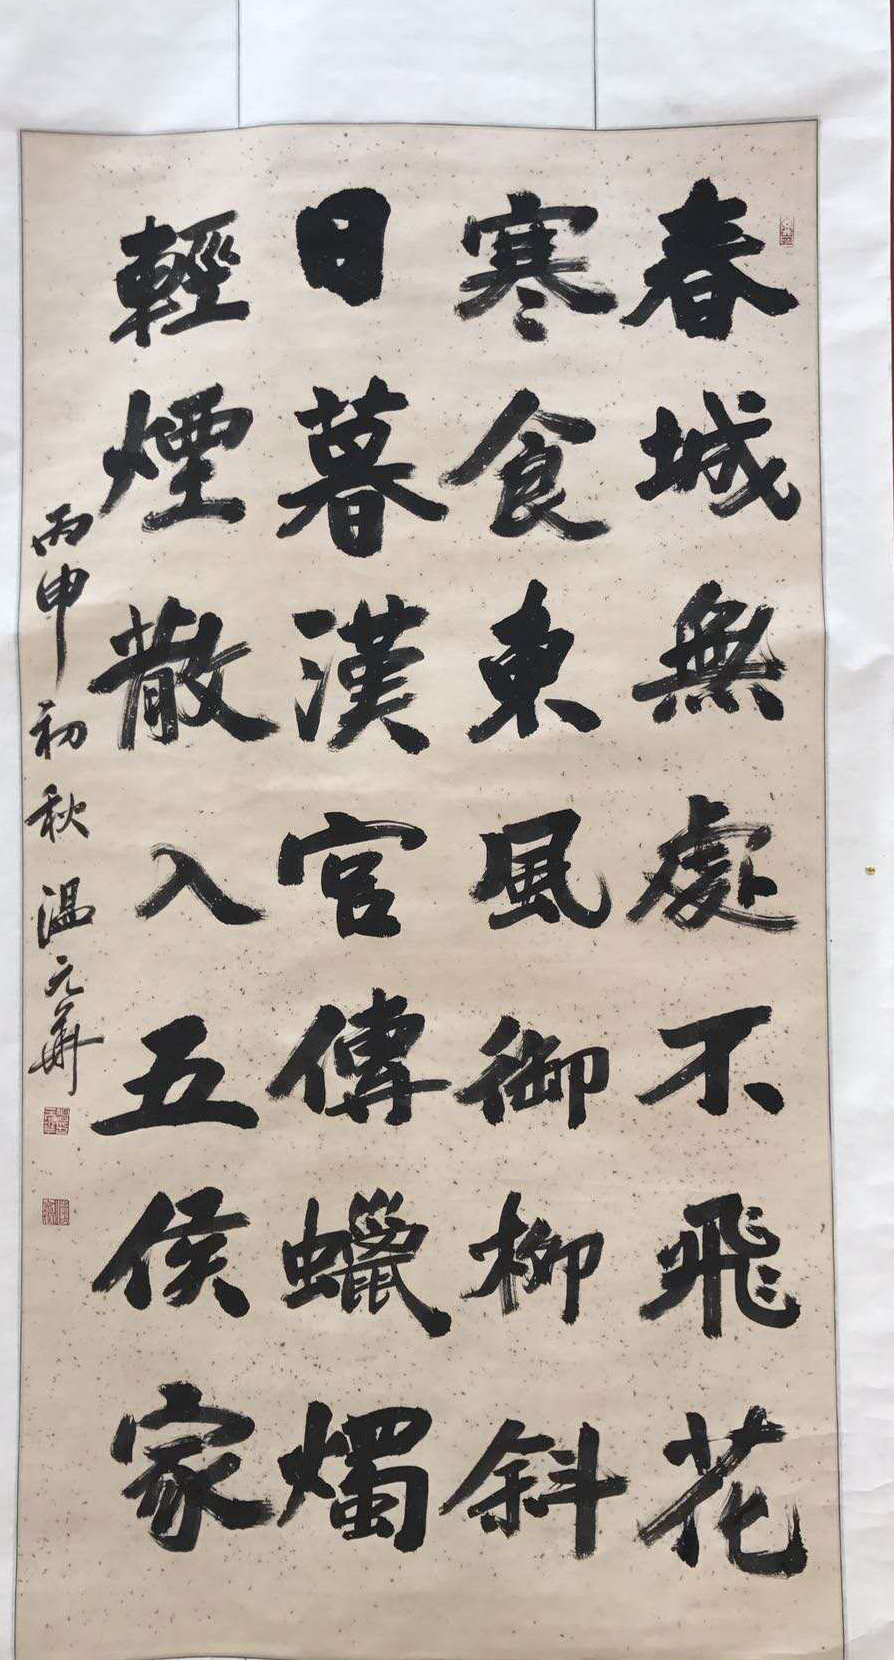 春城無處不飛花
寒食東風御柳斜
日暮漢官傳蠟燭
輕煙散入五侯家
丙申初秋溫元華